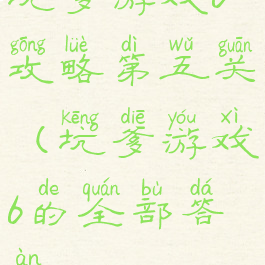 坑爹游戏6
gōng lüè dì wǔ guān
攻略第五关
kēng diē yóu xì
(坑爹游戏
de quán bù dá
6的全部答
àn